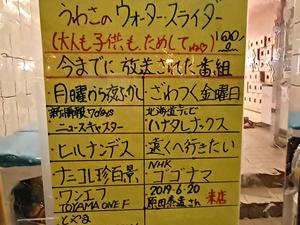 うわさのウォータースライダー
(大人も子供も、ためしてね♡) 100円
今までに放送された番組
・月曜から夜ふかし
・ざわつく金曜日
新・情報7days
ニュースキャスター
北海道テレビ
・ハナタレナックス
・ヒルナンデス
・遠くへ行きたい
・ナニコレ珍百景
NHK
・ゴゴナマ
・ワンエフ
TOYAMA ONE F
2019.6.20
さん来店
・とやま